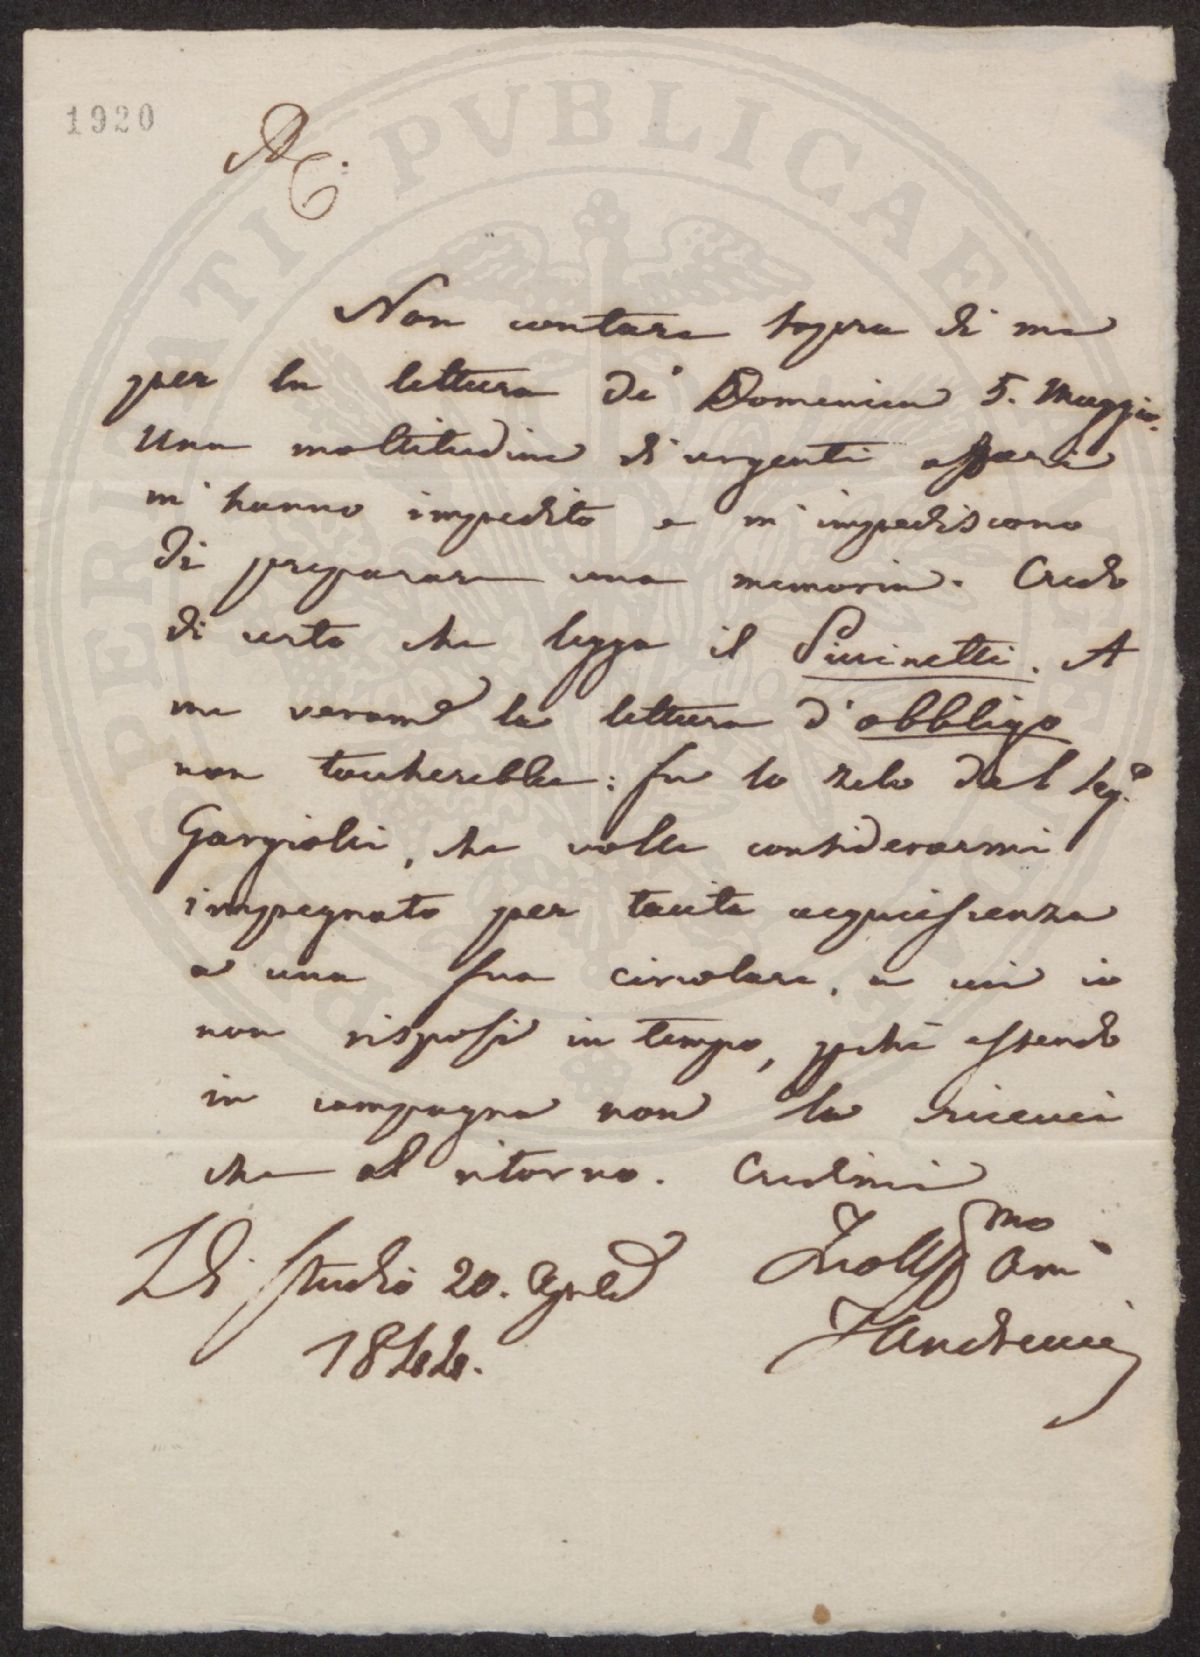 1920
A. C.
Non contare sopra di me
per la lettura di Domenica 5. Maggio.
Una moltitudine di urgenti affari
m'hanno impedito e m'impediscono
di preparare una memoria. Credo
di certo che legga il Puccinetti. A
me veramte la lettura d'obbligo
non toccherebbe: fu lo zelo del Segro
Gargiolli, che volle considerarmi
impegnato per tacita acquiescenza
a una sua circolare, a cui io
non risposi in tempo, pchè essendo
in campagna non la ricevei
che al ritorno. Credimi
Di Studio 20. Aprile
1844.
mo Ami
FAndreucci
PERITATI PVBLICAE